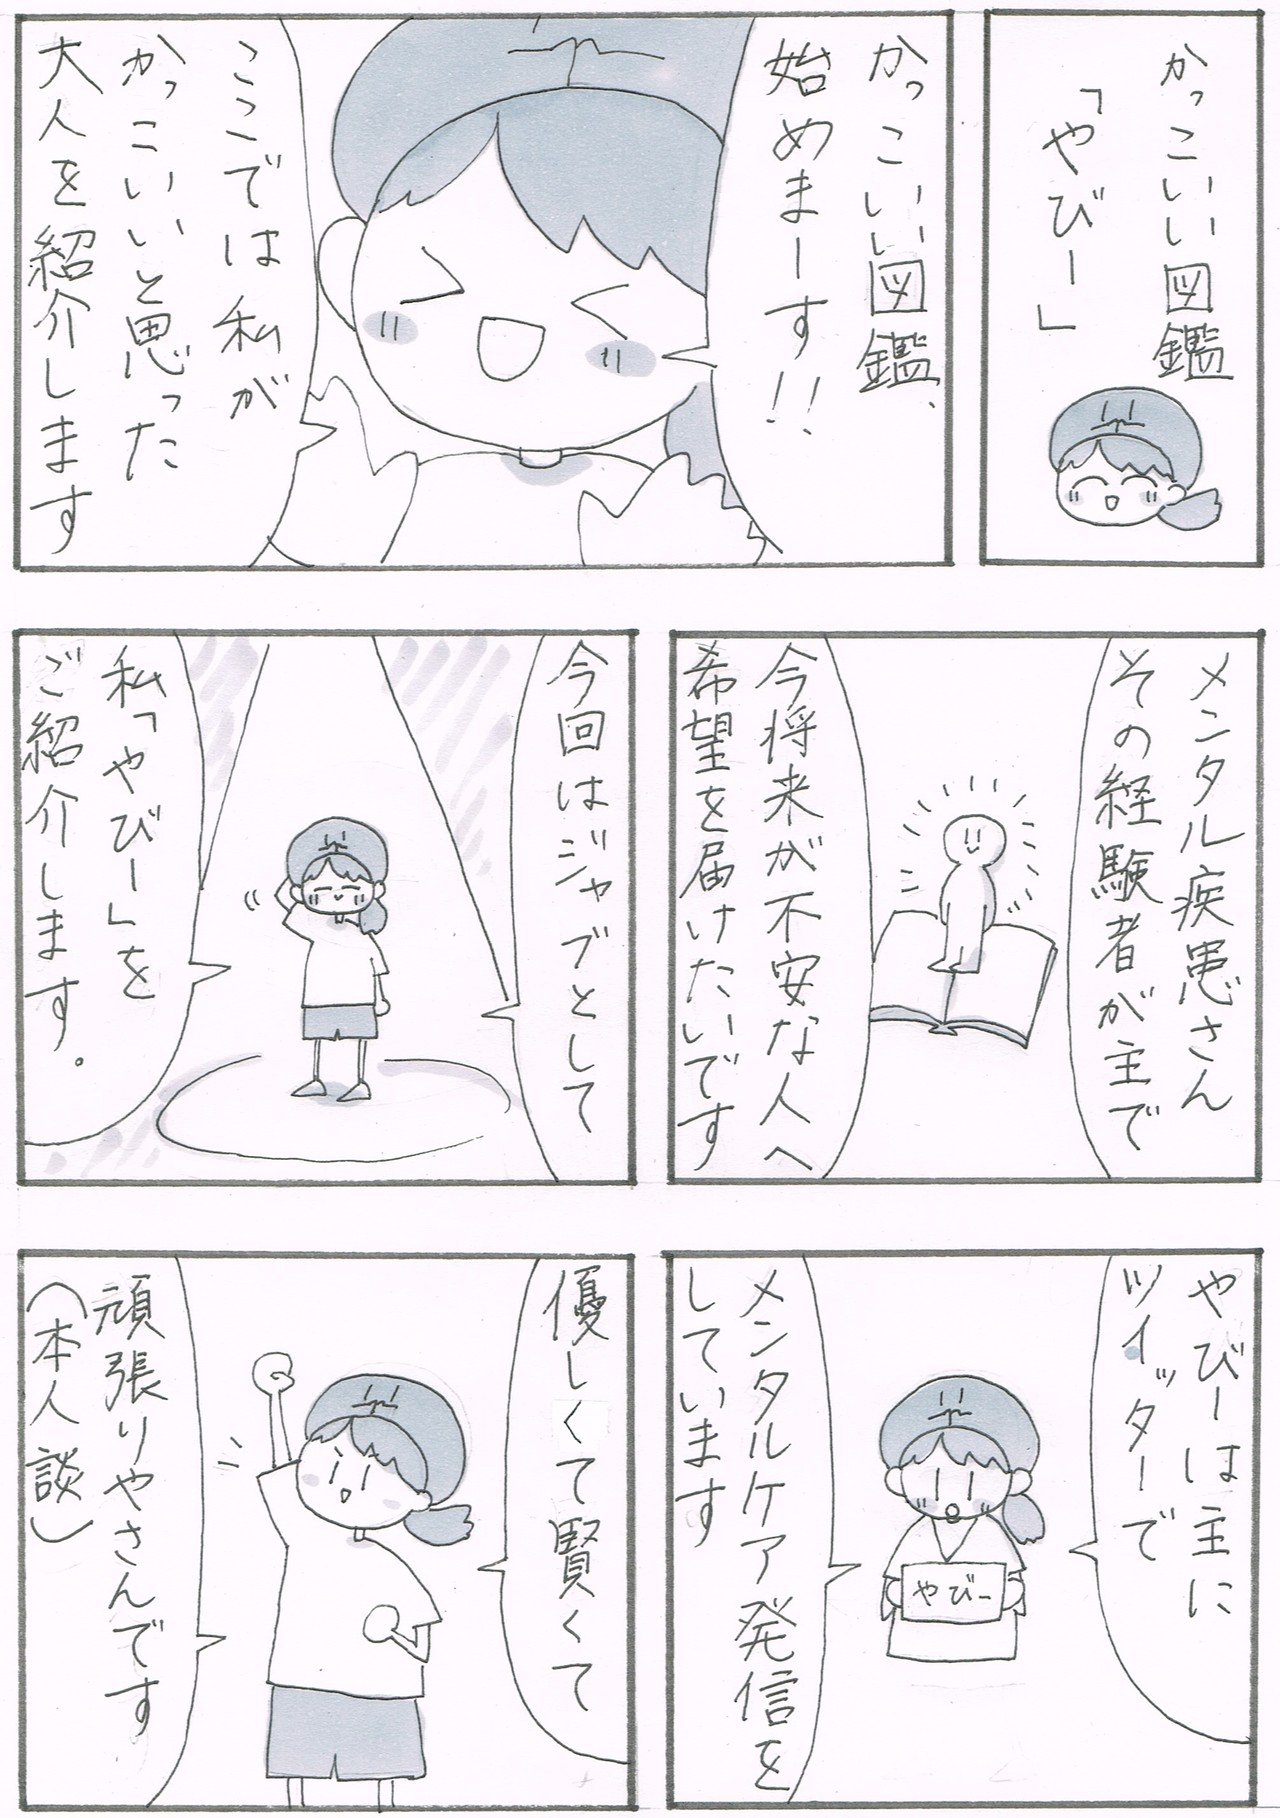 かっこいい図鑑
「やびー」
かっこいい図鑑、
始めまーす!!
ここでは私が
かっこいいと思った
大人を紹介します
メンタル疾患さん
その経験者が主で
今将来が不安な人へ
希望を届けたいです
今回はジャブとして
私「やびー」を
ご紹介します。
やびーは主に
ツイッターで
メンタルケア発信を
しています
やびー
優しくて賢くて
頑張りやさんです
(本人談)